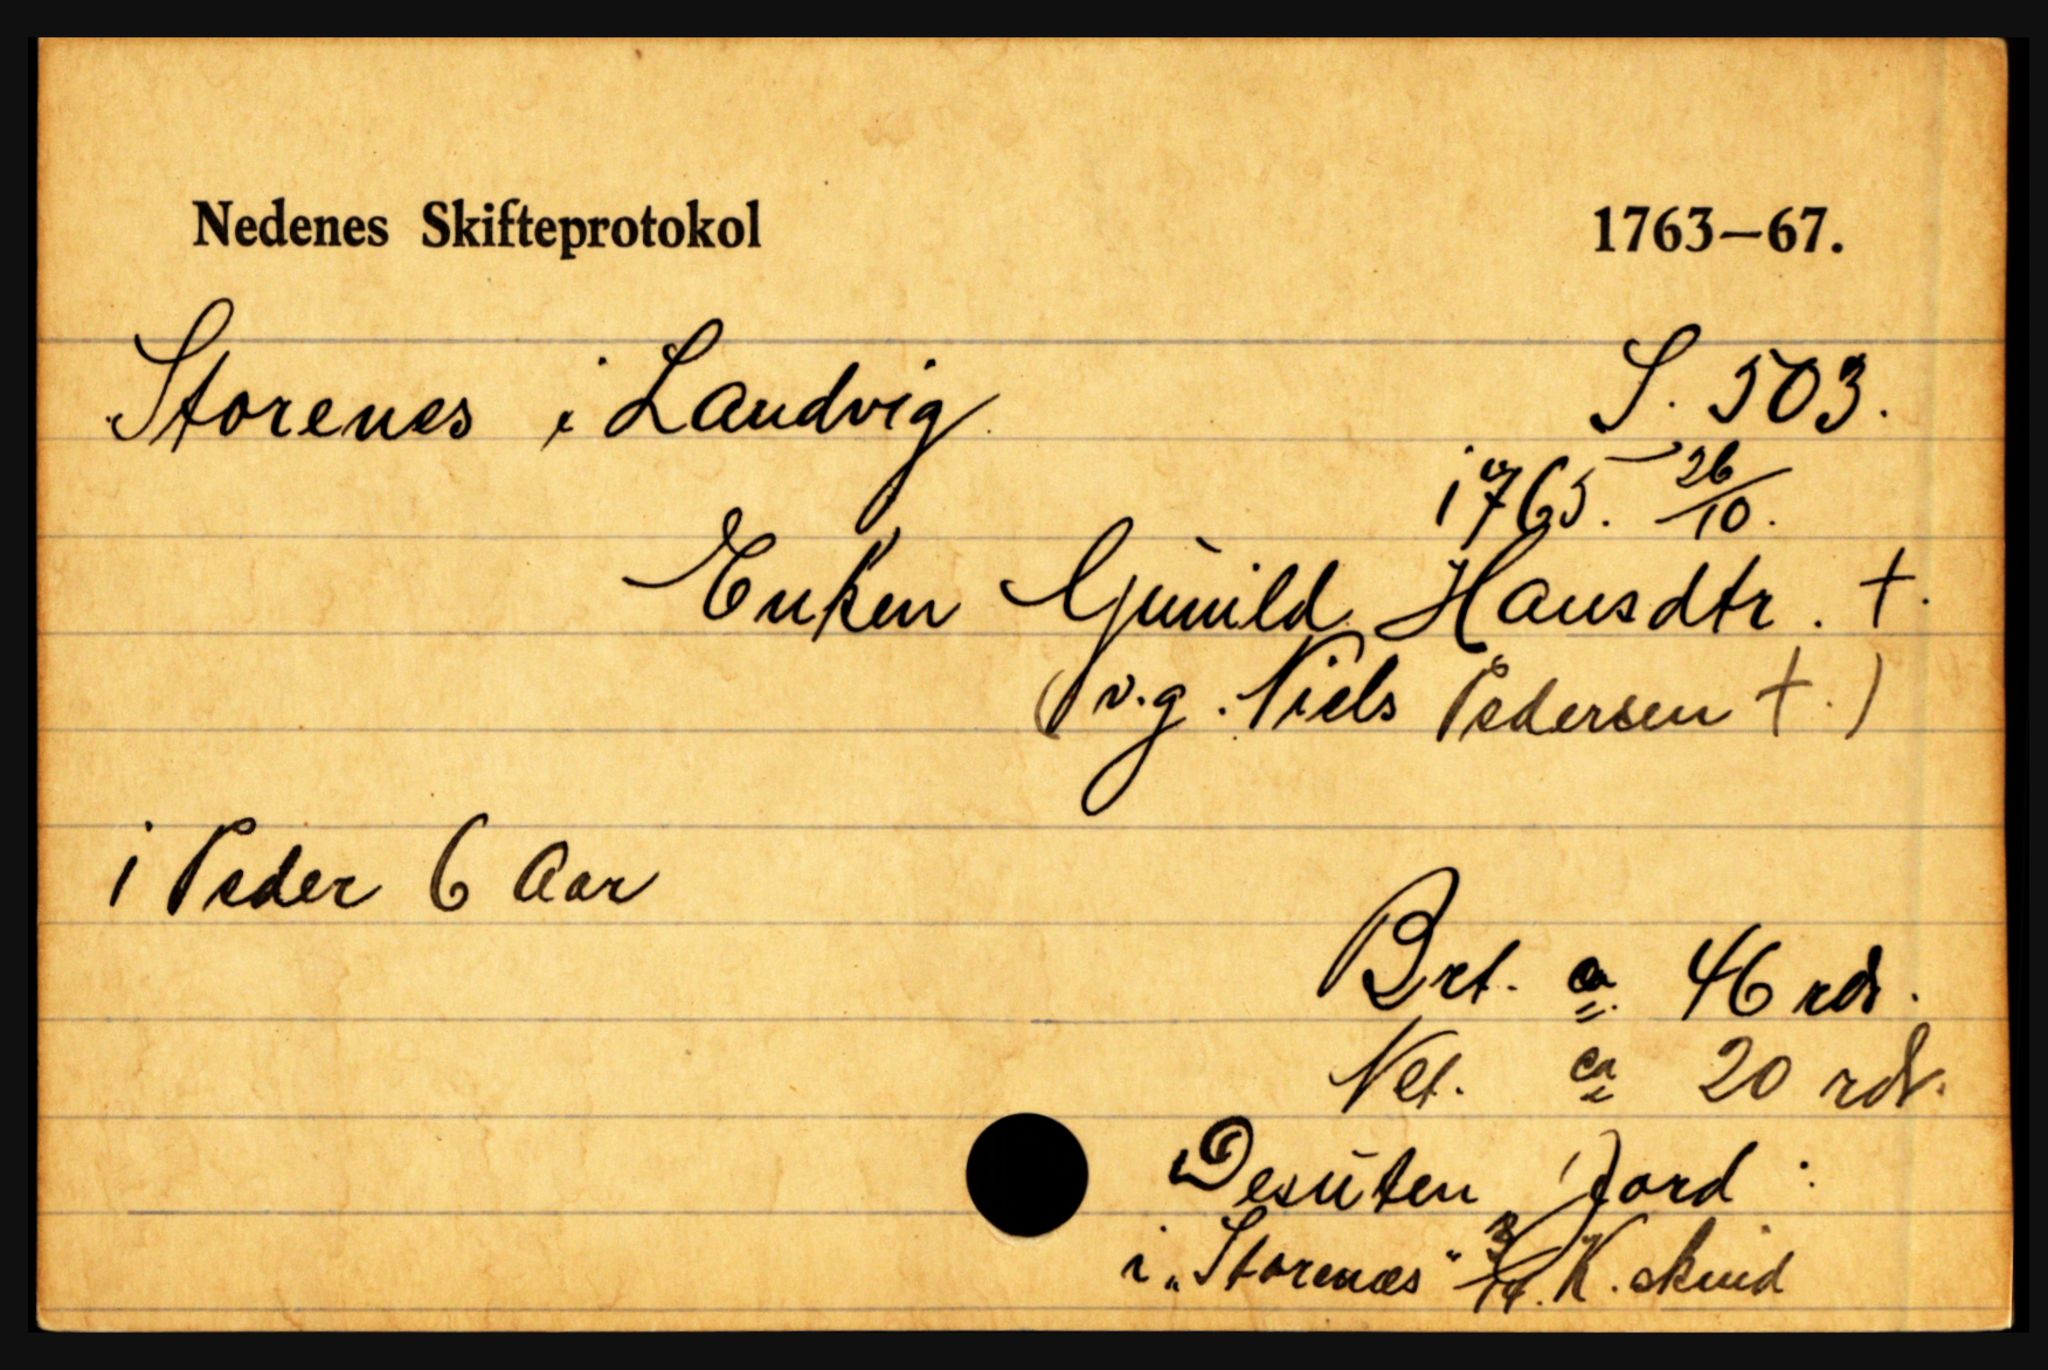 Nedenes Skifteprotokol 1763—67.
Storenes i Landvig S. 503.
1765. 26/10.
Enken Gunild Hansdtr. †.
(v.g. Niels Pedersen †.)
1 Peder 6 Aar
Brt. ca 46 rdr.
Net. ca 20 rdr.
Desuten Jord:
i „Storenæs" 3/4. K. skind